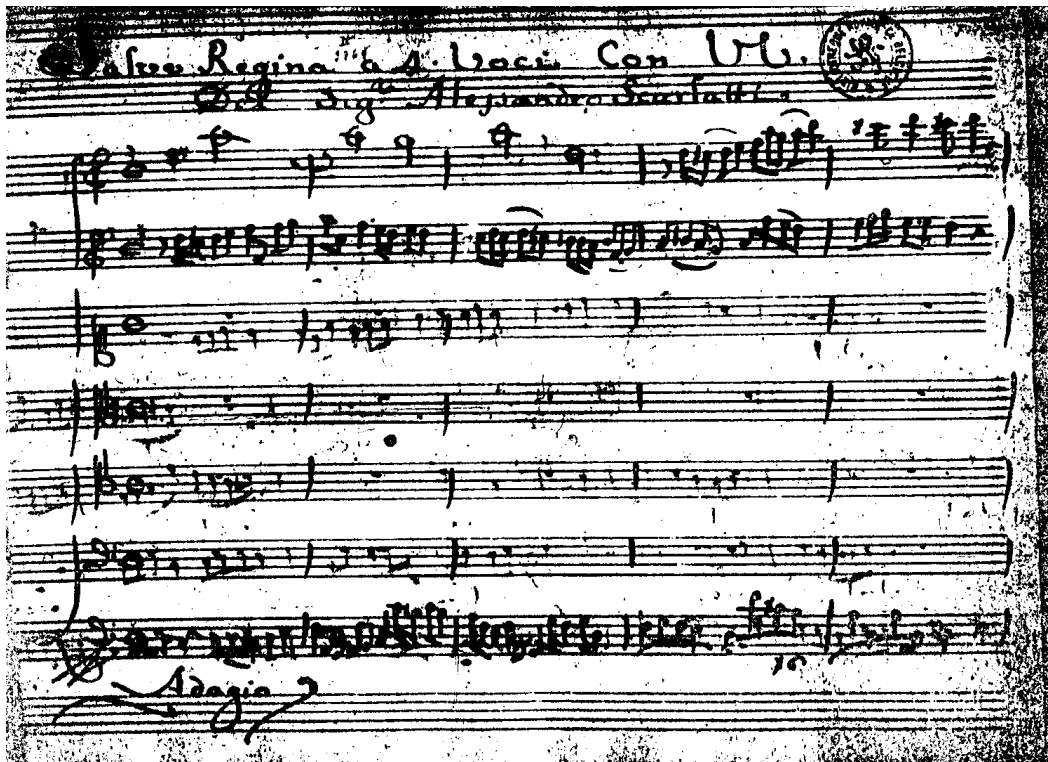 Salve Regina a 4. Voci Con VV.
Del Sig.r Alessandro Scarlatti.
16
Adagio